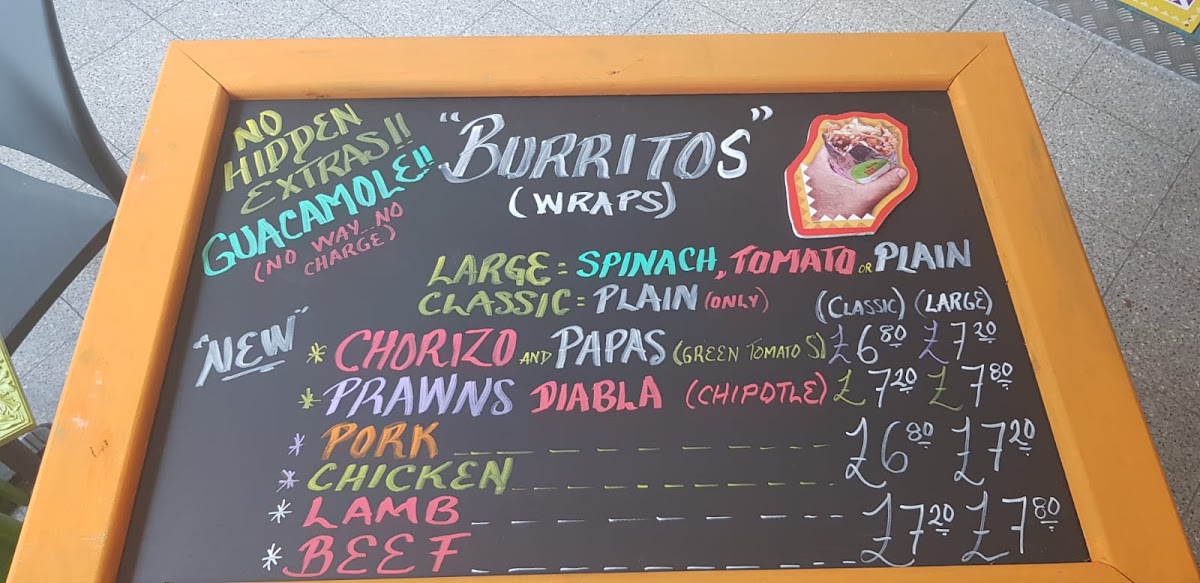 NO
HIDDEN
EXTRAS!!
GUACAMOLE!!
(NO WAY...NO
CHARGE)
"BURRITOS"
(WRAPS)
LARGE = SPINACH, TOMATO OR PLAIN
CLASSIC = PLAIN (ONLY) (CLASSIC) (LARGE)
"NEW" * CHORIZO AND PAPAS (GREEN TOMATO S) £6.80 £7.20
* PRAWNS DIABLA (CHIPOTLE) £7.20 £7.80
* PORK £6.80 £7.20
* CHICKEN
* LAMB £7.20 £7.80
* BEEF